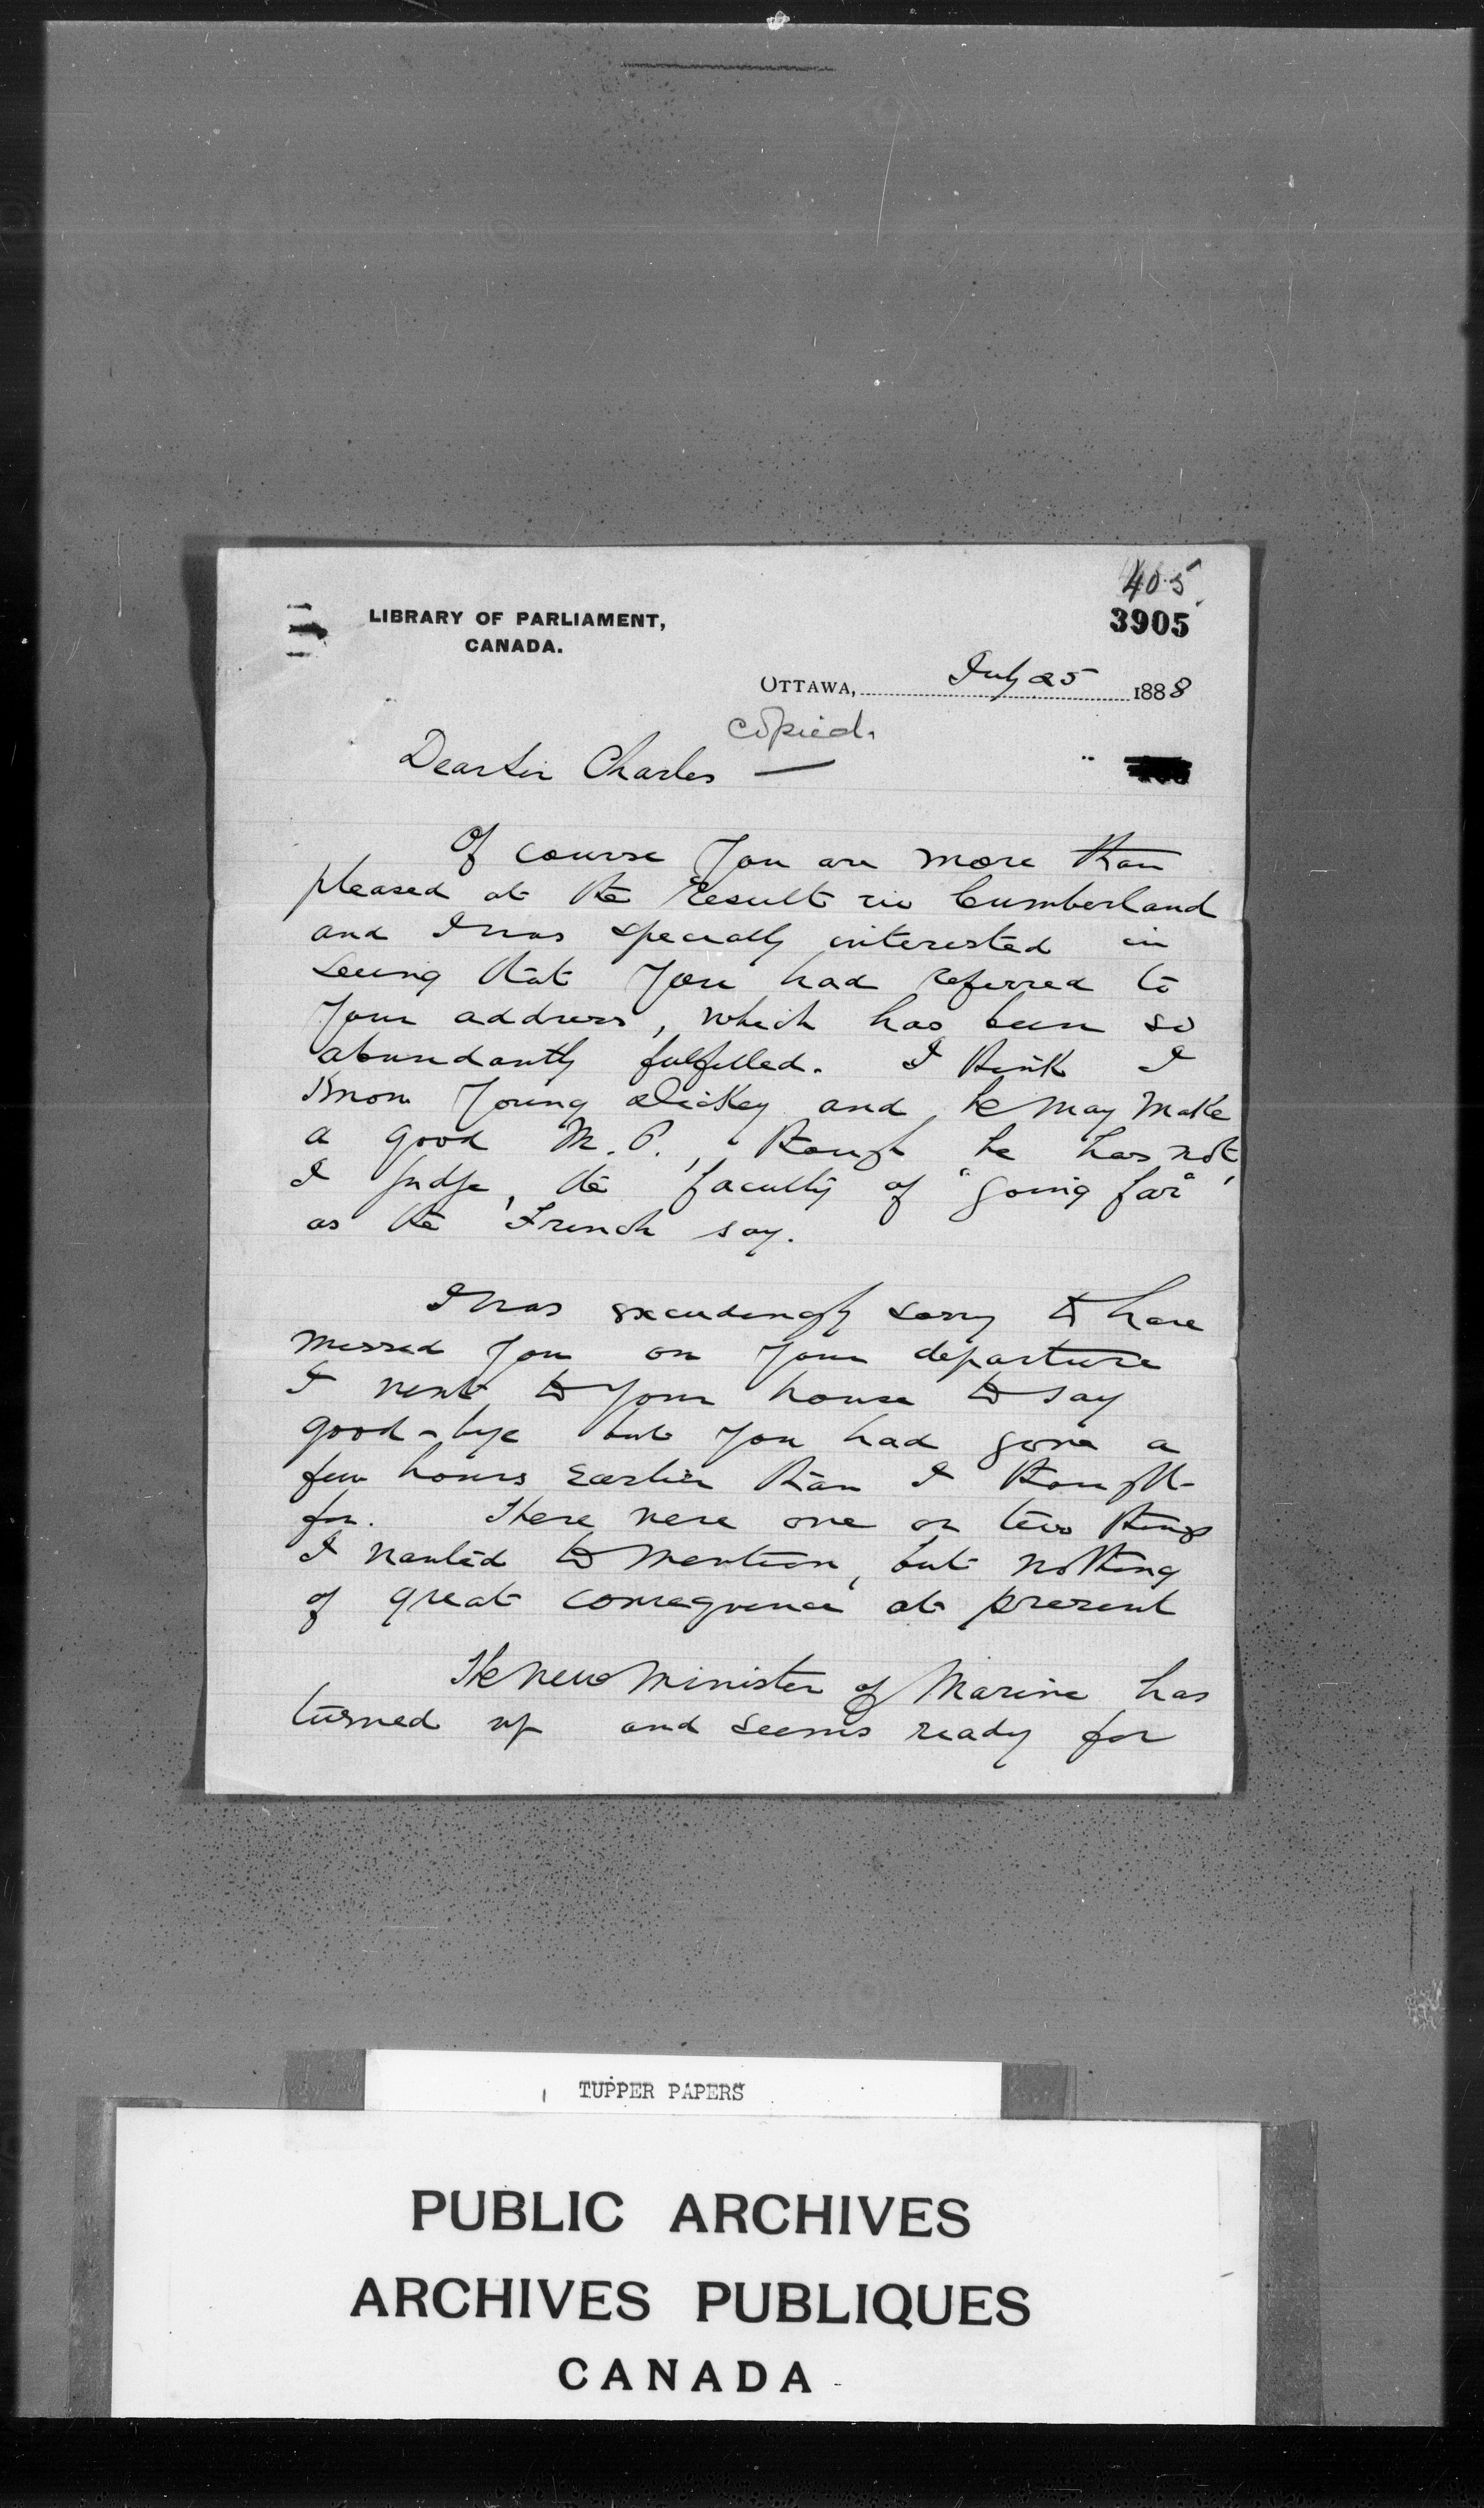 405
LIBRARY OF PARLIAMENT,
CANADA.
3905
OTTAWA, July 25 1888
copied.
Dear Sir Charles —
Of course you are more than
pleased at the result in Cumberland
and I was specially interested in
seeing that you had referred to
your address, which has been so
abundantly fulfilled. I think I
know young Dickey and he may make
a good M.P., though he has not,
I judge, the faculty of "going far"
as the French say.
I was exceedingly sorry to have
missed you on your departure
I went to your house to say
good-bye but you had gone a
few hours earlier than I thought
for. There were one or two things
I wanted to mention, but nothing
of great consequence at present
The new Minister of Marine has
turned up and seems ready for
TUPPER PAPERS
PUBLIC ARCHIVES
ARCHIVES PUBLIQUES
CANADA